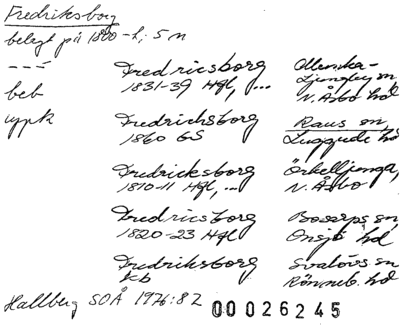 Fredriksborg
belagt på 1800-t, 5 n
--- Fredricsborg Ottarska-
1831-39 Hfl, ... Ljungby sn
beb N. Åsbo hd
uppk Fredrichsborg Raus sn,
1860 GS Luggude hd
Fredricksborg Örkelljunga,
1810-11 Hfl, ... N. Åsbo
Fredricsborg Bosarps sn,
1820-23 Hfl Onsjö hd
Fredriksborg Svalövs sn,
kb Rönneb. hd
Hallberg SOÅ 1976:82 00026245